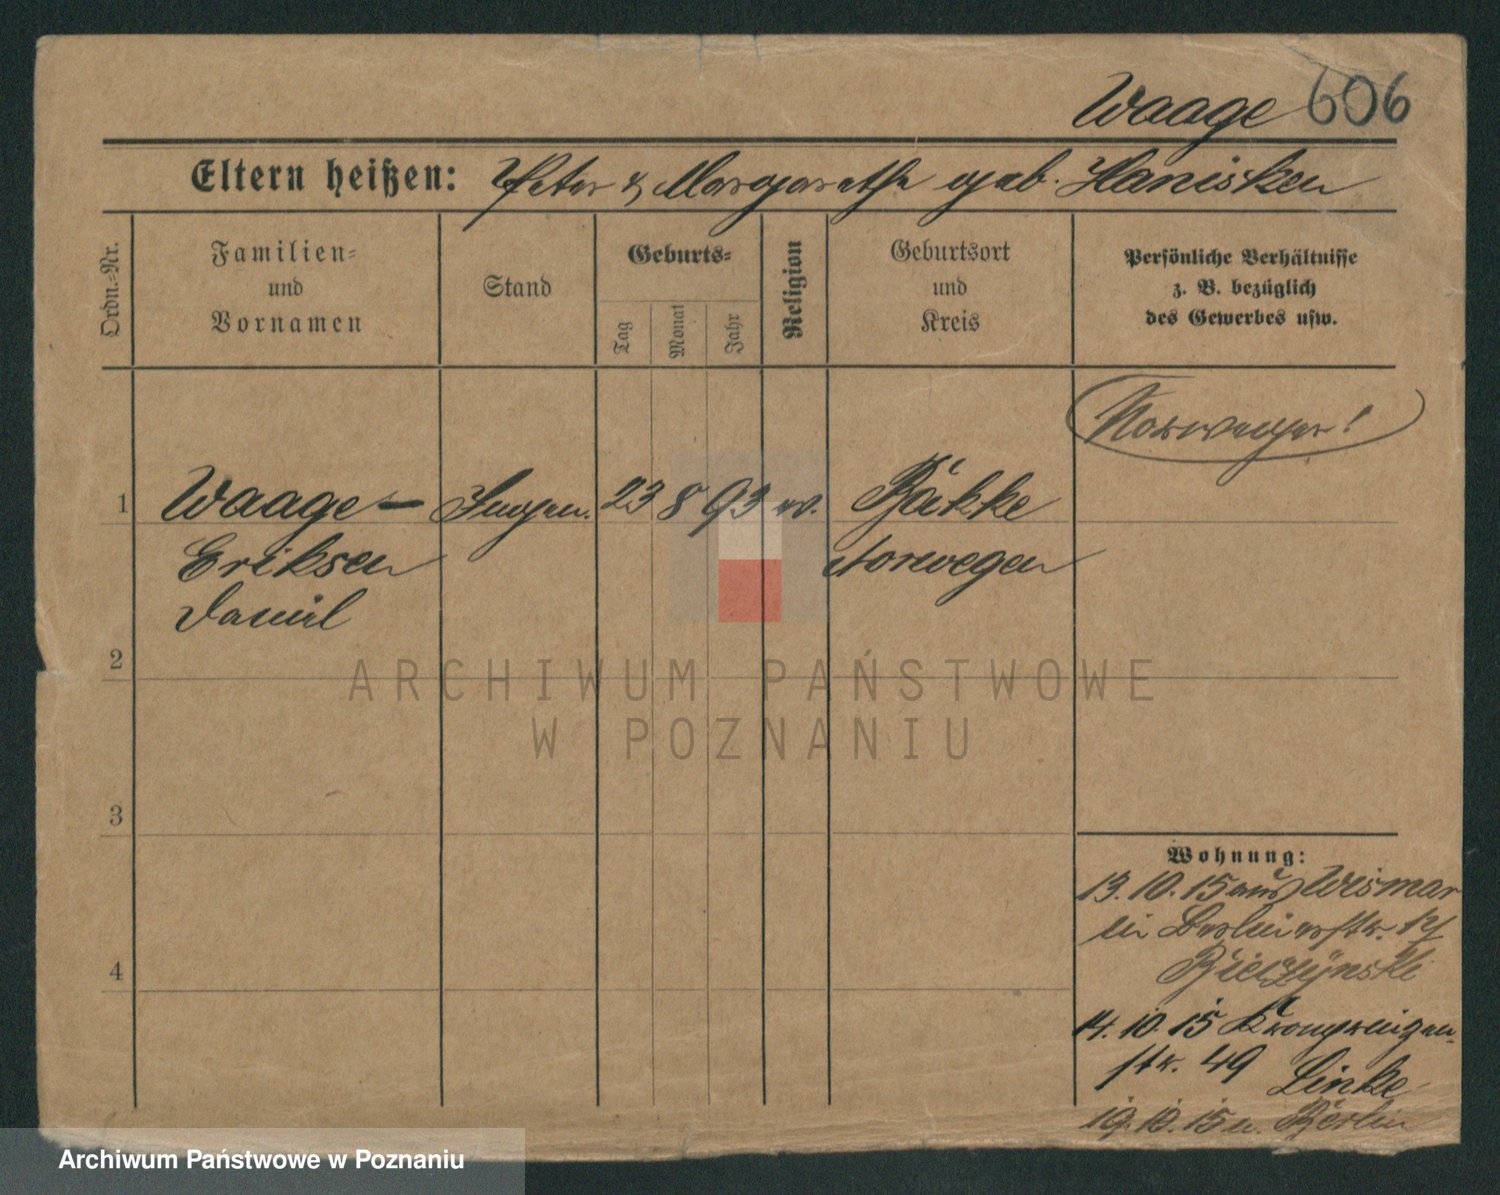 Waage 606
Eltern heißen: Peter & Margarethe geb. Hanisken
Ordn.-Nr.
Familien-
und
Vornamen
Stand
Geburts-
Tag
Monat
Jahr
Religion
Geburtsort
und
Kreis
Persönliche Verhältnisse
z. B. bezüglich
des Gewerbes usw.
Norweger!
1 Waage - 23 8 93 ev. Bäkke
Eriksen Norwegen
Daniel
2
3
4
Wohnung:
13. 10. 15 aus Wismar
in Berlinerstr. 12
14. 10. 15 Kronprinzen-
str. 49 Linke
19. 10. 15 n. Berlin
ARCHIWUM PAŃSTWOWE
W POZNANIU
Archiwum Państwowe w Poznaniu